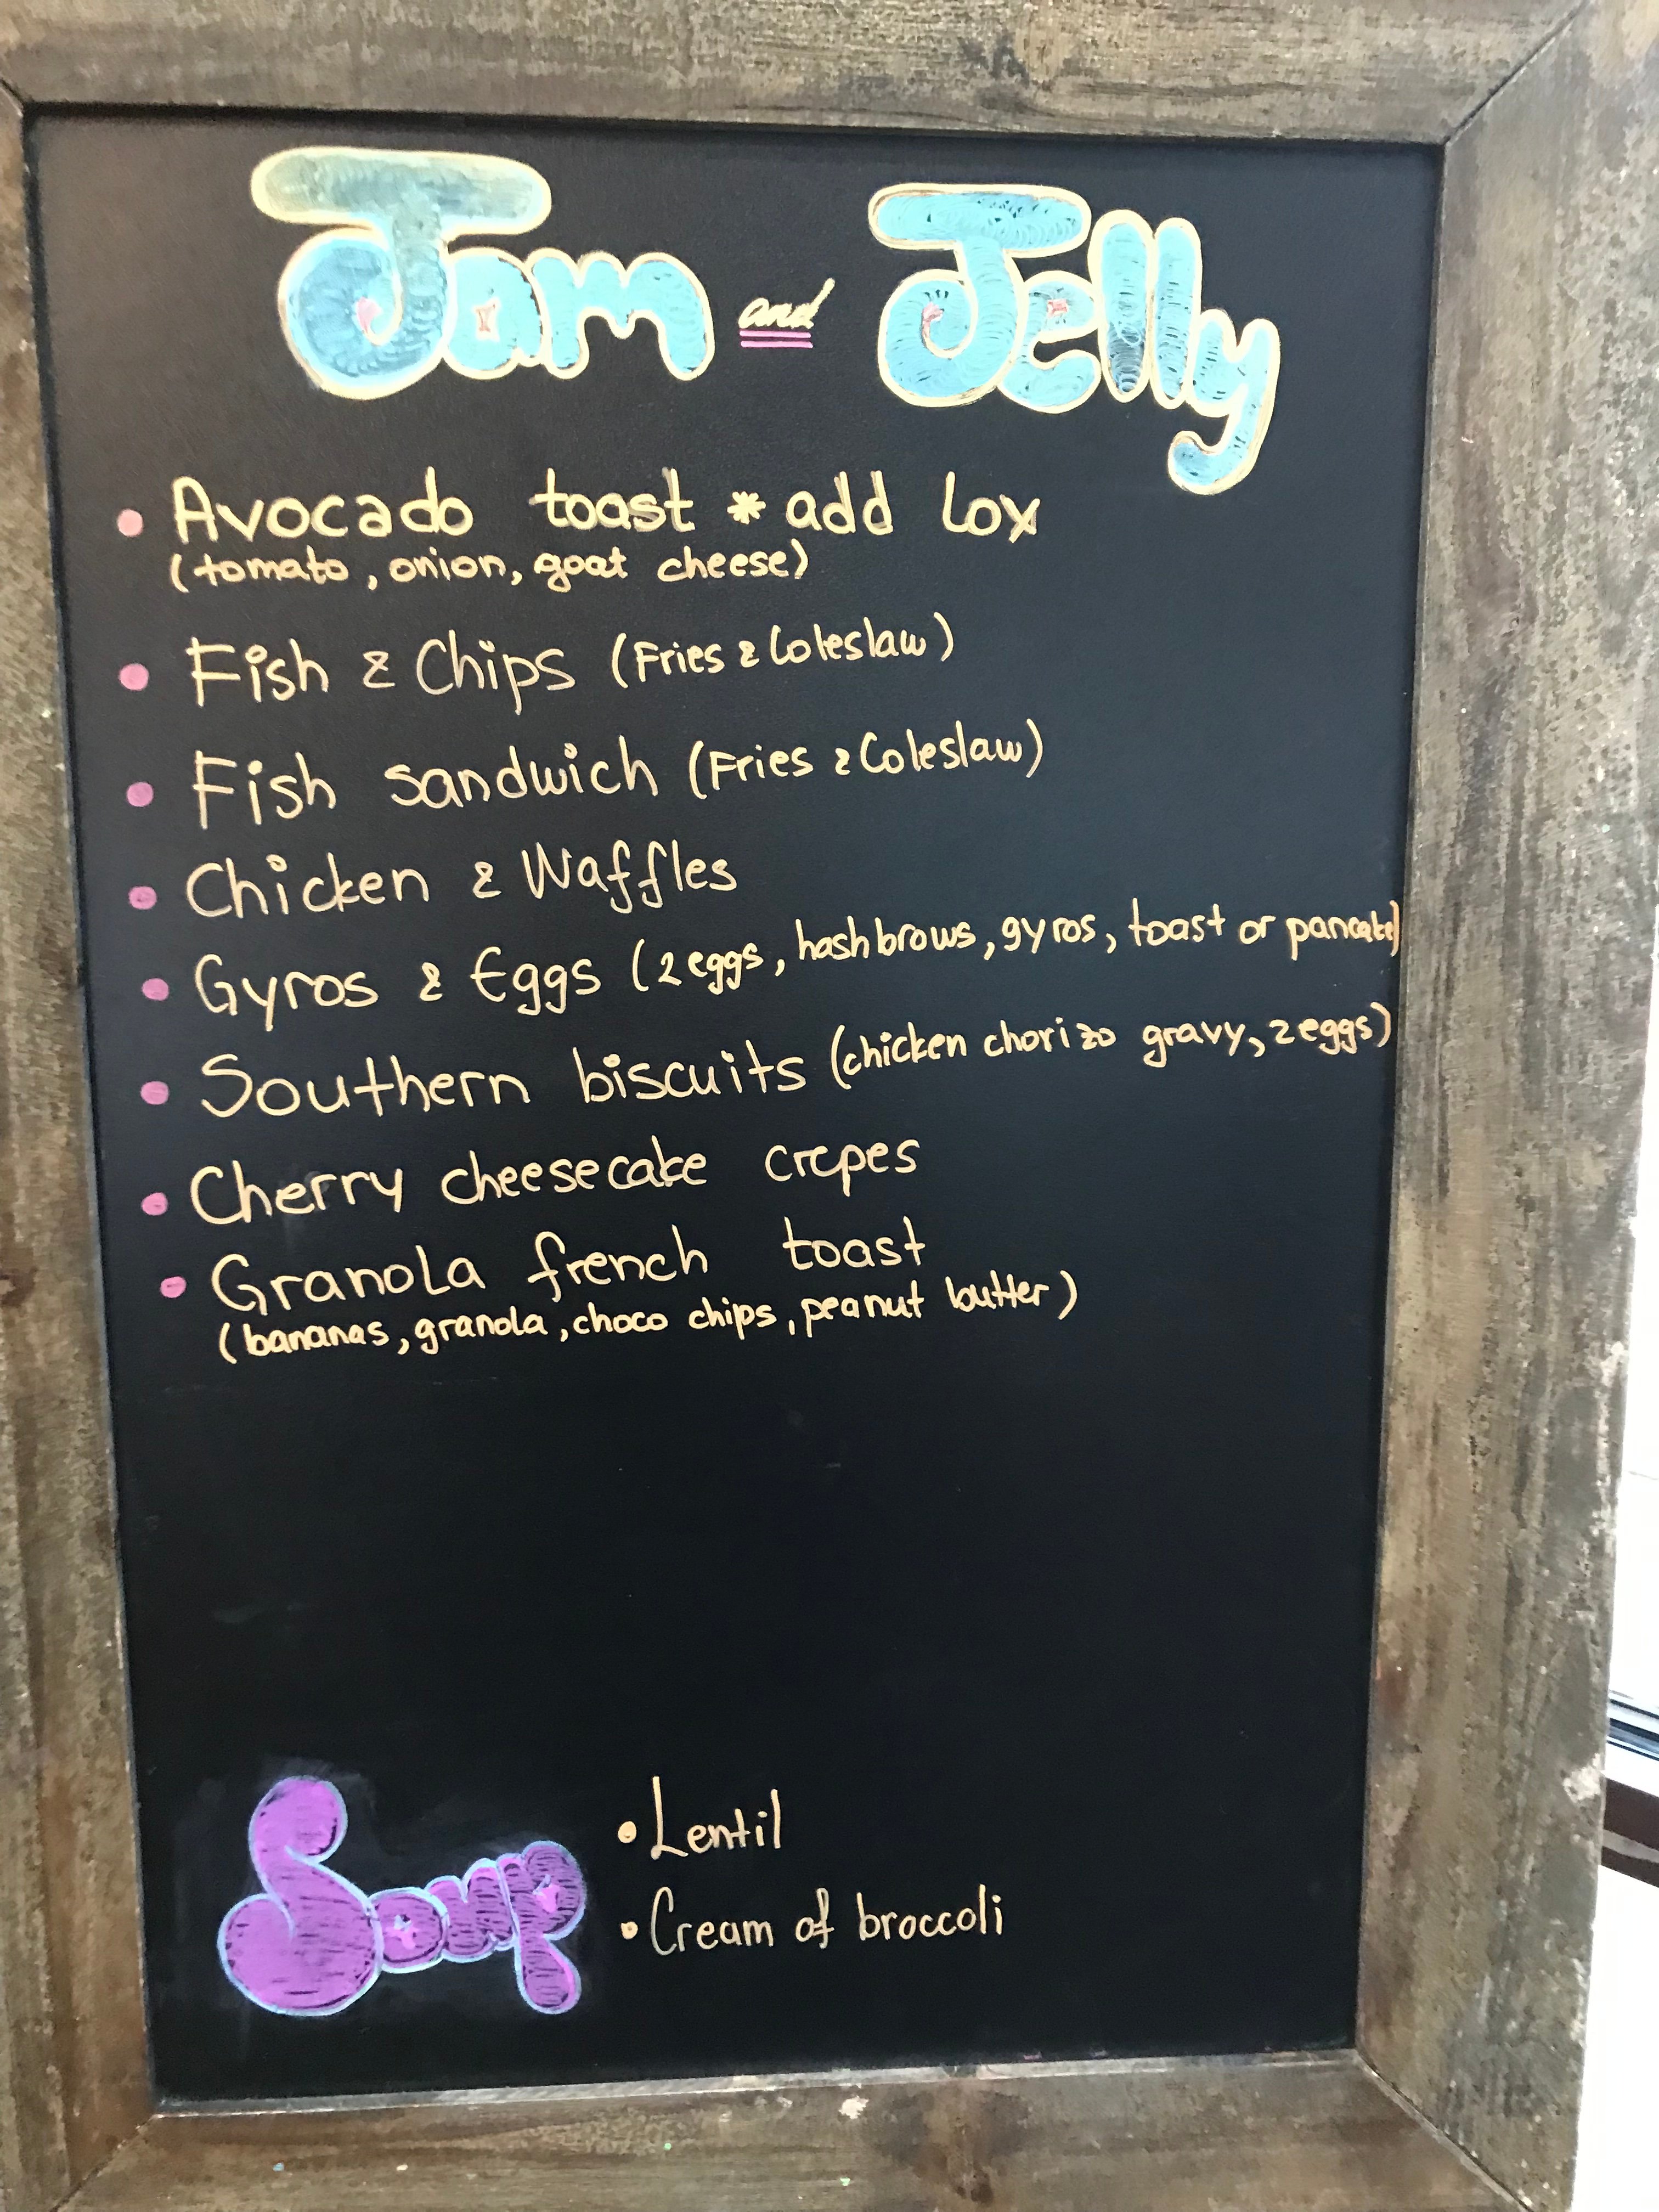 Jam and Jelly
• Avocado toast * add lox
(tomato, onion, goat cheese)
• Fish & Chips (Fries & Coleslaw)
• Fish sandwich (Fries & Coleslaw)
• Chicken & Waffles
• Gyros & Eggs (2 eggs, hashbrows, gyros, toast or pancake)
• Southern biscuits (chicken chorizo gravy, 2 eggs)
• Cherry cheesecake crepes
• Granola french toast
(bananas, granola, choco chips, peanut butter)
Soup
• Lentil
• Cream of broccoli